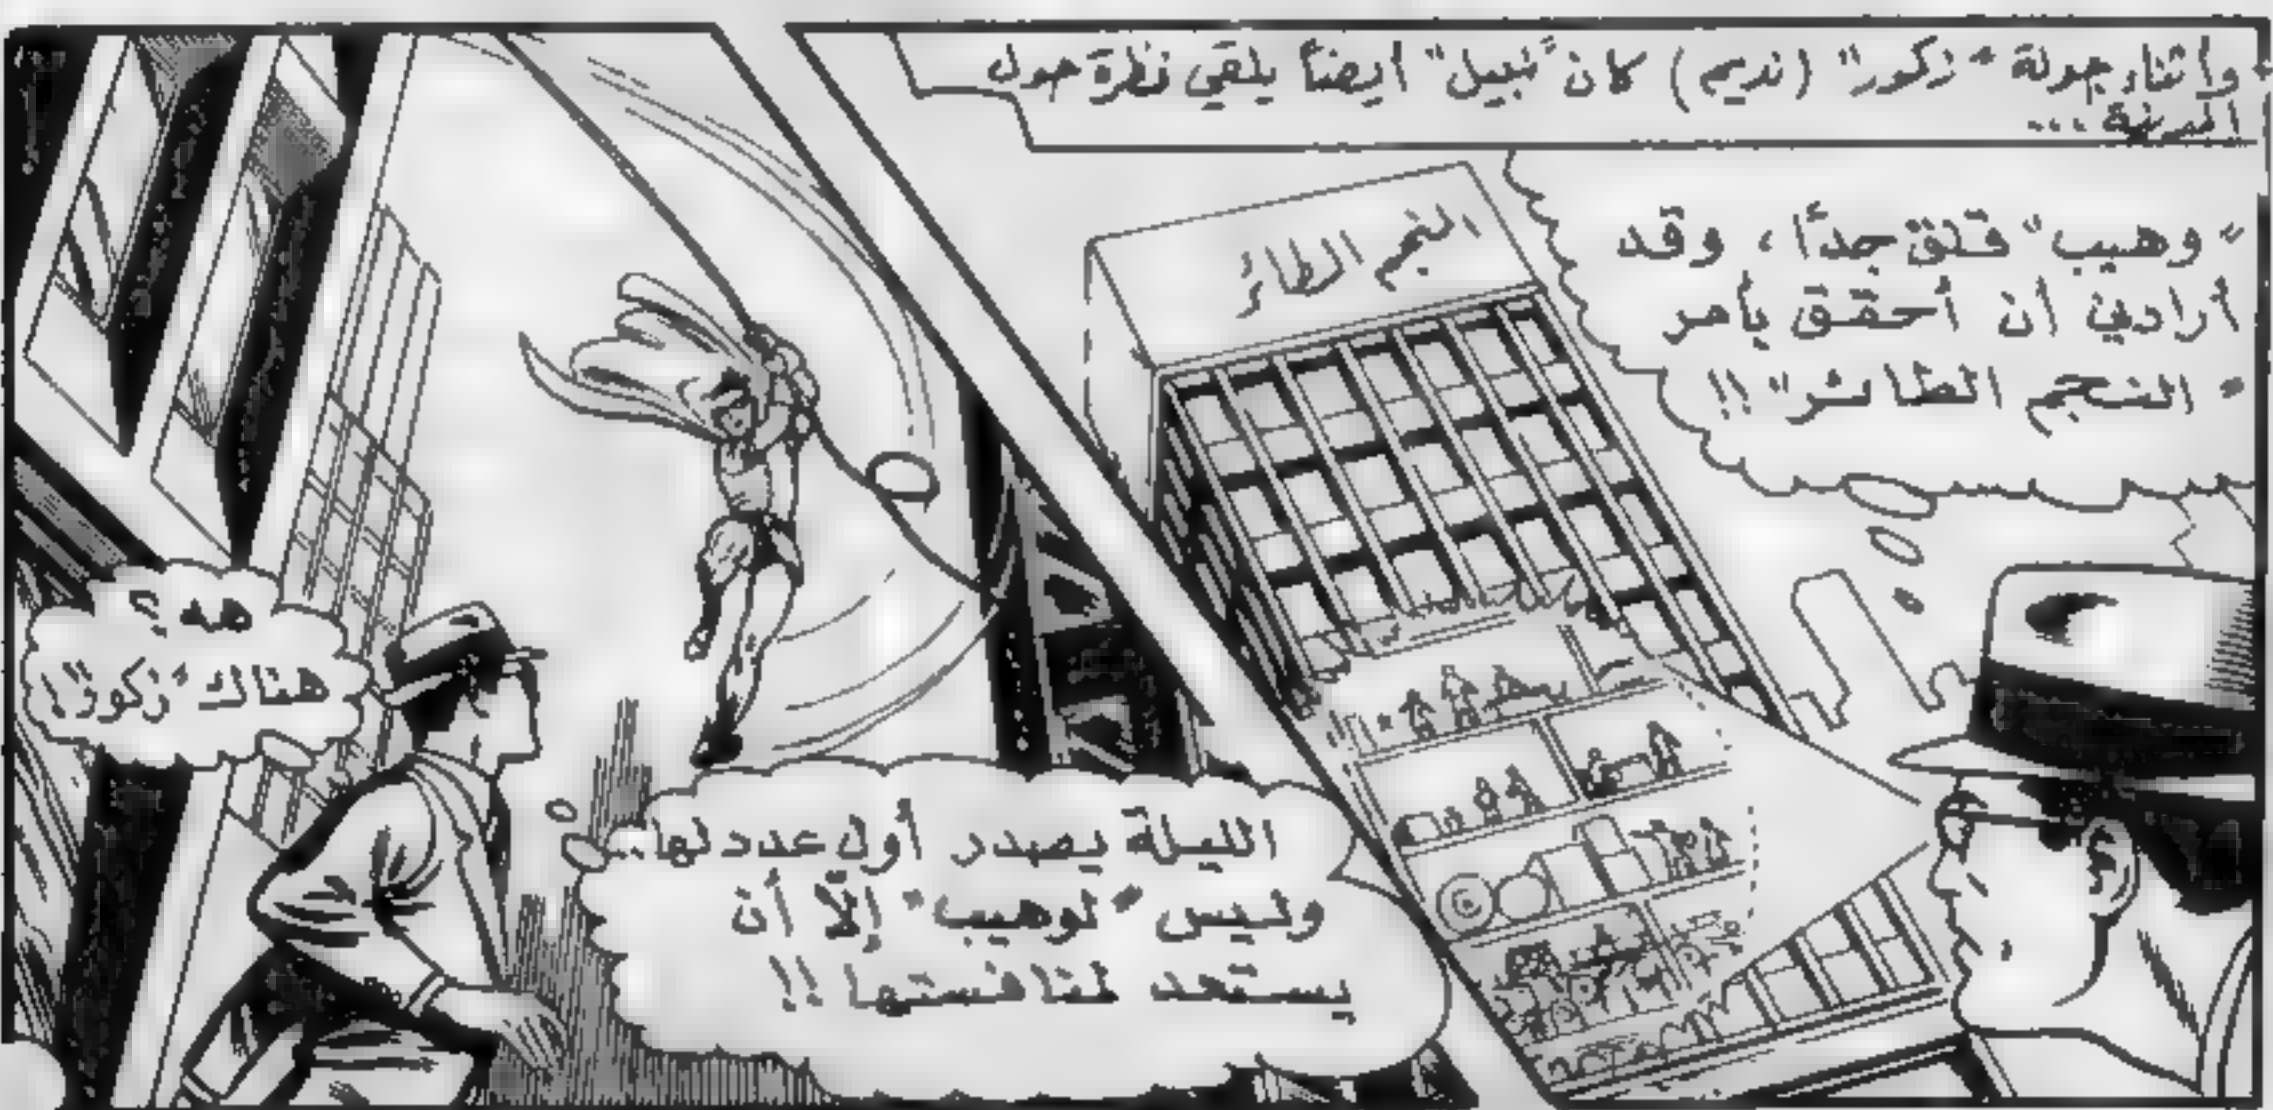 وأثناء جولة "زكور" (نديم) كان "نبيل" أيضاً يلقي نظرة حول
المدينة ...
"وهيب" قلق جداً، وقد
أرادني أن أحقق بأمر
"النجم الطائر"!!
النجم الطائر
الليلة يصدر أول عدد لها...
وليس "لوهيب" إلّا أن
يستعد لمنافستها!!
هه؟
هناك "زكور"!